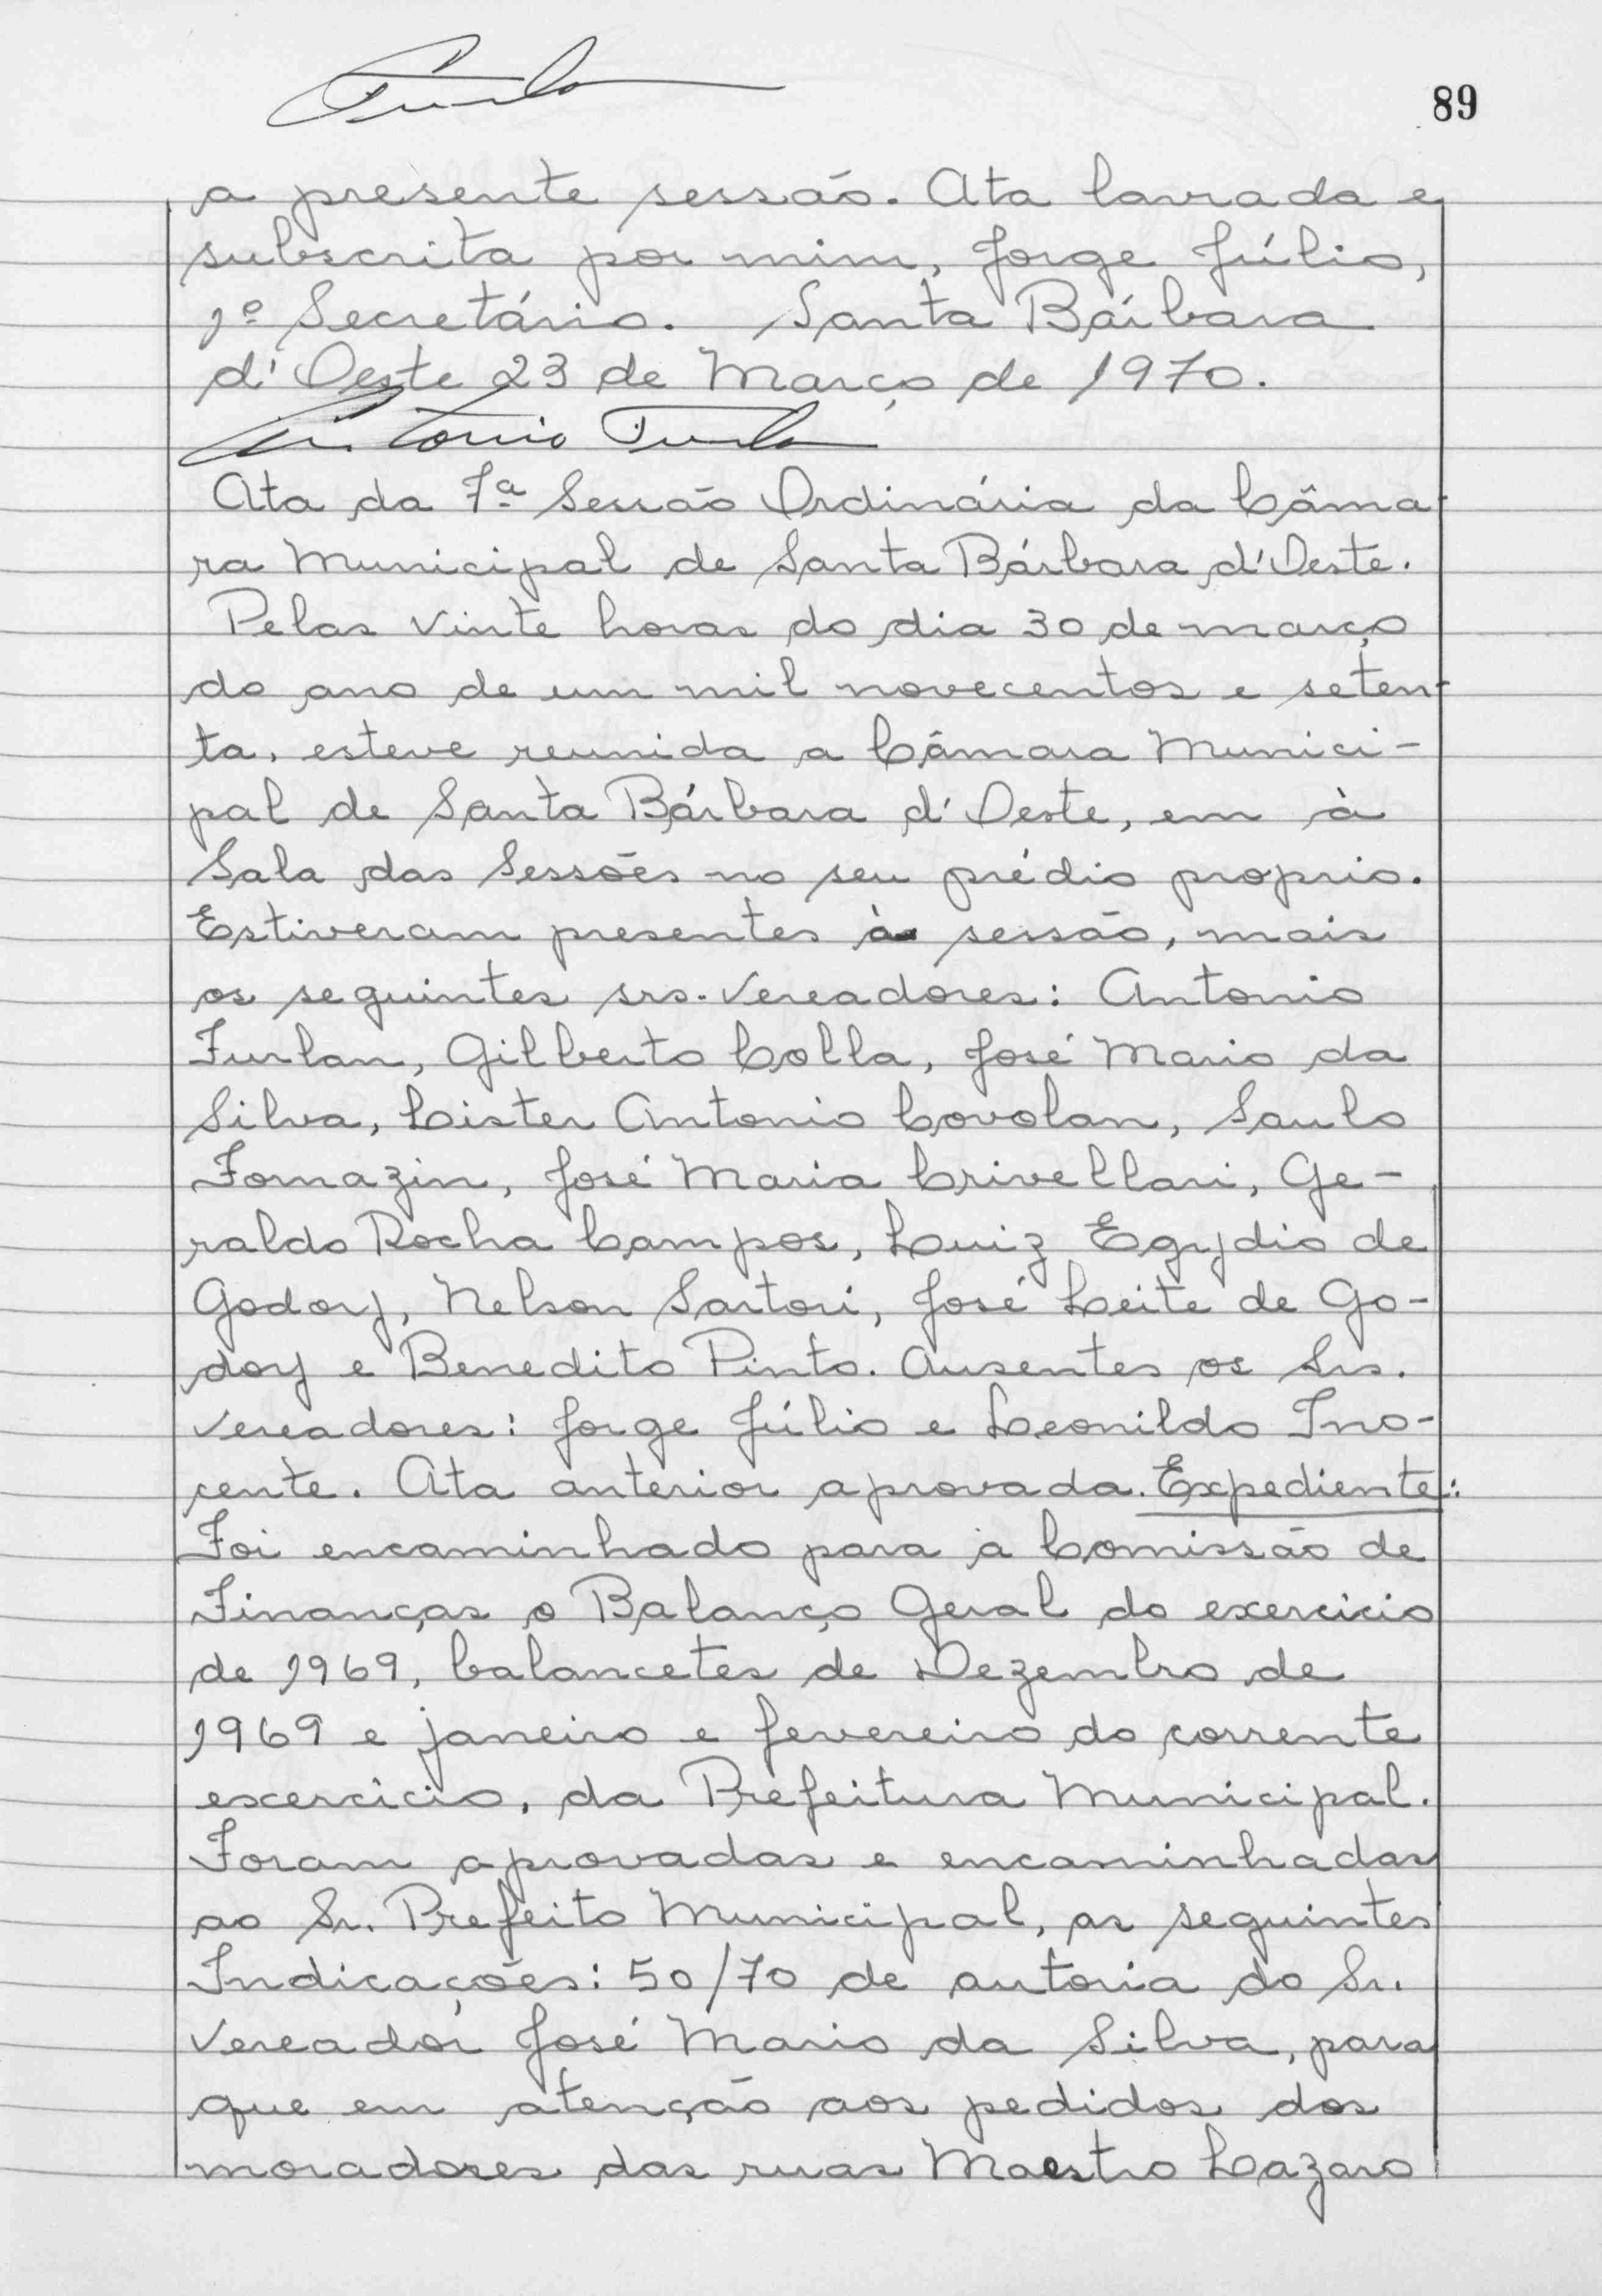 Furlan
89
a presente sessão. Ata lavrada e
subscrita por mim, Jorge Júlio,
1º Secretário. Santa Bárbara
d'Oeste 23 de Março de 1970.
Antonio Furlan
Ata da 7ª Sessão Ordinária da Câma-
ra Municipal de Santa Bárbara d'Oeste.
Pelas vinte horas do dia 30 de março
do ano de um mil novecentos e seten-
ta, esteve reunida a Câmara Munici-
pal de Santa Bárbara d'Oeste, em à
Sala das Sessões no seu prédio proprio.
Estiveram presentes à sessão, mais
os seguintes srs. Vereadores: Antonio
Furlan, Gilberto Colla, José Mario da
Silva, Lister Antonio Covolan, Saulo
Fornazin, José Maria Crivellari, Ge-
raldo Rocha Campos, Luiz Egydio de
Godoy, Nelson Sartori, José Leite de Go-
doy e Benedito Pinto. Ausentes os Srs.
Vereadores: Jorge Júlio e Leonildo Ino-
cente. Ata anterior aprovada. Expediente:
Foi encaminhado para a Comissão de
Finanças o Balanço Geral do exercicio
de 1969, balancetes de Dezembro de
1969 e janeiro e fevereiro do corrente
exercicio, da Prefeitura Municipal.
Foram aprovadas e encaminhadas
ao Sr. Prefeito Municipal, as seguintes
Indicações: 50/70 de autoria do Sr.
Vereador José Mario da Silva, para
que em atenção aos pedidos dos
moradores das ruas Maestro Lazaro